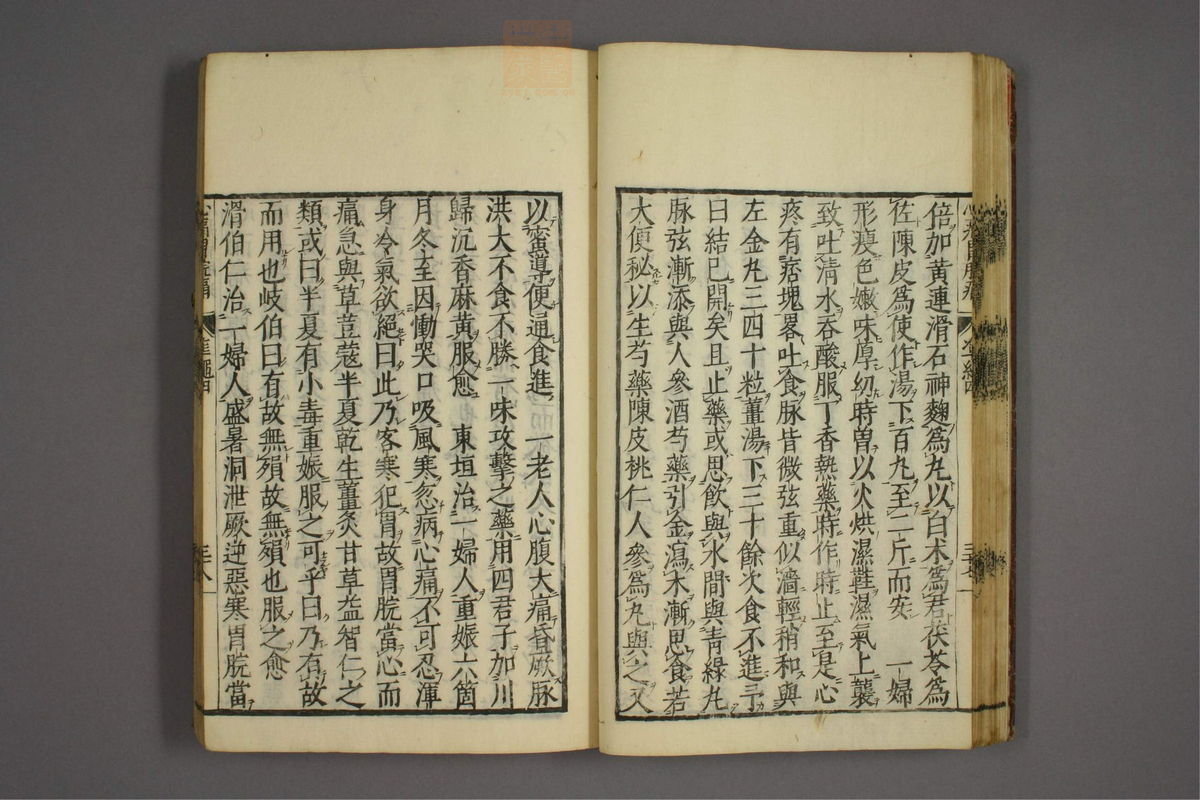 倍加黄連滑石神麴爲丸以白朮爲君茯苓爲
佐陳皮爲使作湯下百丸至二斤而安　一婦
形瘦色嫩味厚幼時曾以火烘濕鞋濕氣上襲
致吐清水吞酸服丁香熱藥時作時止至是心
疼有痞塊畧吐食脉皆微弦重似濇輕稍和與
左金丸三四十粒薑湯下三十餘次食不進予
曰結已開矣且止藥或思飲與水間與青綠丸
脉弦漸添與人參酒芍藥引金瀉木漸思食若
大便秘以生芍藥陳皮桃仁人參爲丸與之又
以蜜導便通食進　一老人心腹大痛昏厥脉
洪大不食不勝一味攻擊之藥用四君子加川
歸沉香麻黄服愈　東垣治一婦人重娠六箇
月冬至因慟哭口吸風寒忽病心痛不可忍渾
身冷氣欲絕曰此乃客寒犯胃故胃脘當心而
痛急與草荳蔻半夏乾生薑炙甘草益智仁之
類或曰半夏有小毒重娠服之可乎曰乃有故
而用也岐伯曰有故無殞故無殞也服之愈
滑伯仁治一婦人盛暑洞泄厥逆惡寒胃脘當
三十八